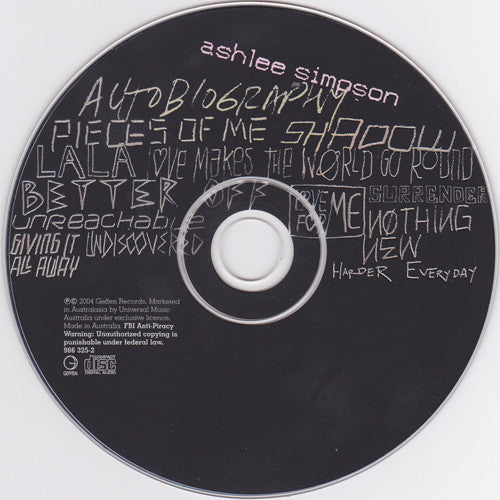 ashlee simpson
AUTOBIOGRAPHY
PIECES OF ME SHADOW
LALA LOVE MAKES THE WORLD GO ROUND
BETTER OFF LOVE ME FOR ME SURRENDER
unreachable NOTHING NEW
GIVING IT ALL AWAY UNDISCOVERED
HARDER EVERYDAY
℗© 2004 Geffen Records. Marketed
in Australasia by Universal Music
Australia under exclusive licence.
Made in Australia. FBI Anti-Piracy
Warning: Unauthorized copying is
punishable under federal law.
986 325-2
G GEFFEN
COMPACT disc DIGITAL AUDIO